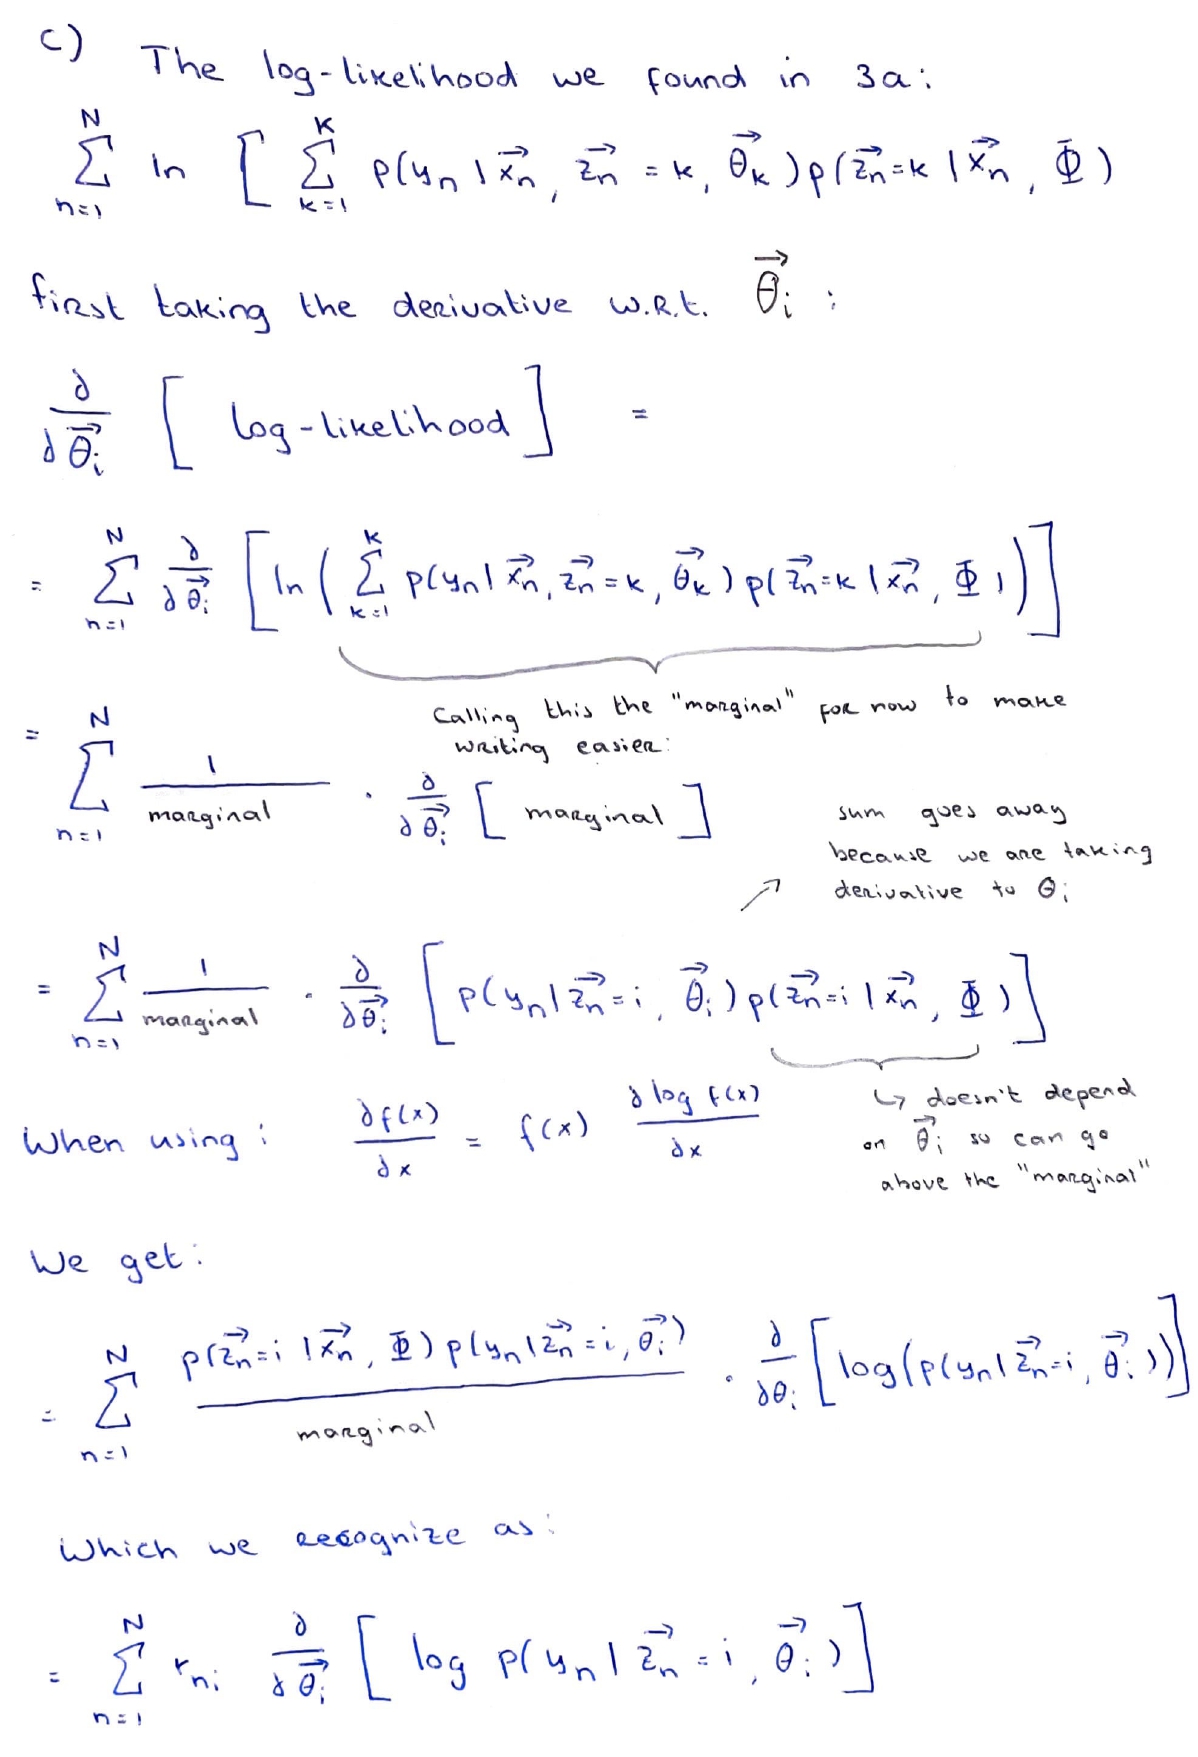 c) The log-likelihood we found in 3a:
$\sum_{n=1}^{N} \ln \left[ \sum_{k=1}^{K} p(y_n | \vec{x_n}, \vec{z_n} = k, \vec{\theta_k}) p(\vec{z_n} = k | \vec{x_n}, \Phi) \right.$
first taking the derivative w.r.t. $\vec{\theta_i}$ :
$\frac{\partial}{\partial \vec{\theta_i}} \left[ \text{log-likelihood} \right] =$
$= \sum_{n=1}^{N} \frac{\partial}{\partial \vec{\theta_i}} \left[ \ln \left( \sum_{k=1}^{K} p(y_n | \vec{x_n}, \vec{z_n} = k, \vec{\theta_k}) p(\vec{z_n} = k | \vec{x_n}, \Phi) \right) \right]$
Calling this the "marginal" for now to make
writing easier:
$= \sum_{n=1}^{N} \frac{1}{\text{marginal}} \cdot \frac{\partial}{\partial \vec{\theta_i}} \left[ \text{marginal} \right]$
sum goes away
because we are taking
derivative to $\theta_i$
$= \sum_{n=1}^{N} \frac{1}{\text{marginal}} \cdot \frac{\partial}{\partial \vec{\theta_i}} \left[ p(y_n | \vec{z_n} = i, \vec{\theta_i}) p(\vec{z_n} = i | \vec{x_n}, \Phi) \right]$
↳ doesn't depend
on $\vec{\theta_i}$ so can go
above the "marginal"
When using : $\frac{\partial f(x)}{\partial x} = f(x) \frac{\partial \log f(x)}{\partial x}$
We get:
$= \sum_{n=1}^{N} \frac{p(\vec{z_n} = i | \vec{x_n}, \Phi) p(y_n | \vec{z_n} = i, \vec{\theta_i})}{\text{marginal}} \cdot \frac{\partial}{\partial \theta_i} \left[ \log(p(y_n | \vec{z_n} = i, \vec{\theta_i})) \right]$
Which we recognize as:
$= \sum_{n=1}^{N} r_{ni} \frac{\partial}{\partial \vec{\theta_i}} \left[ \log p(y_n | \vec{z_n} = i, \vec{\theta_i}) \right]$